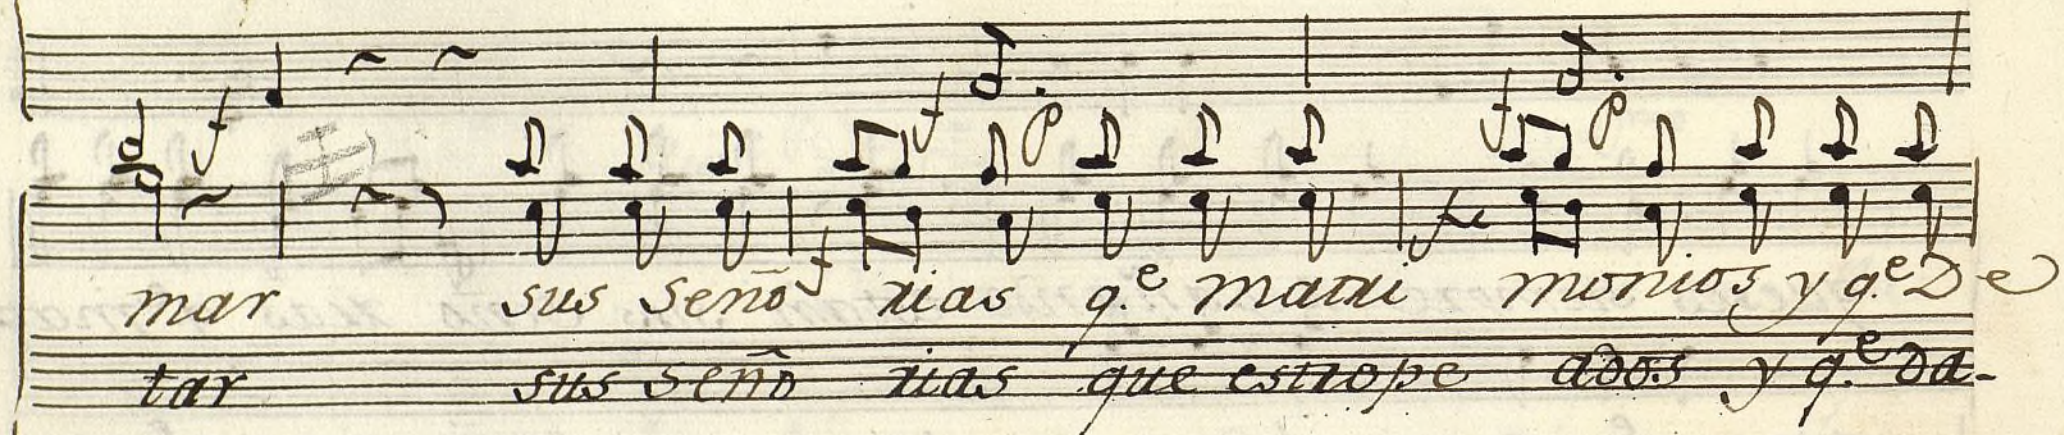 f f p f p
f fe
mar sus Seño rias q.e matri monios y q.e De
tar sus Seño rias que estrope ados y q.e da-